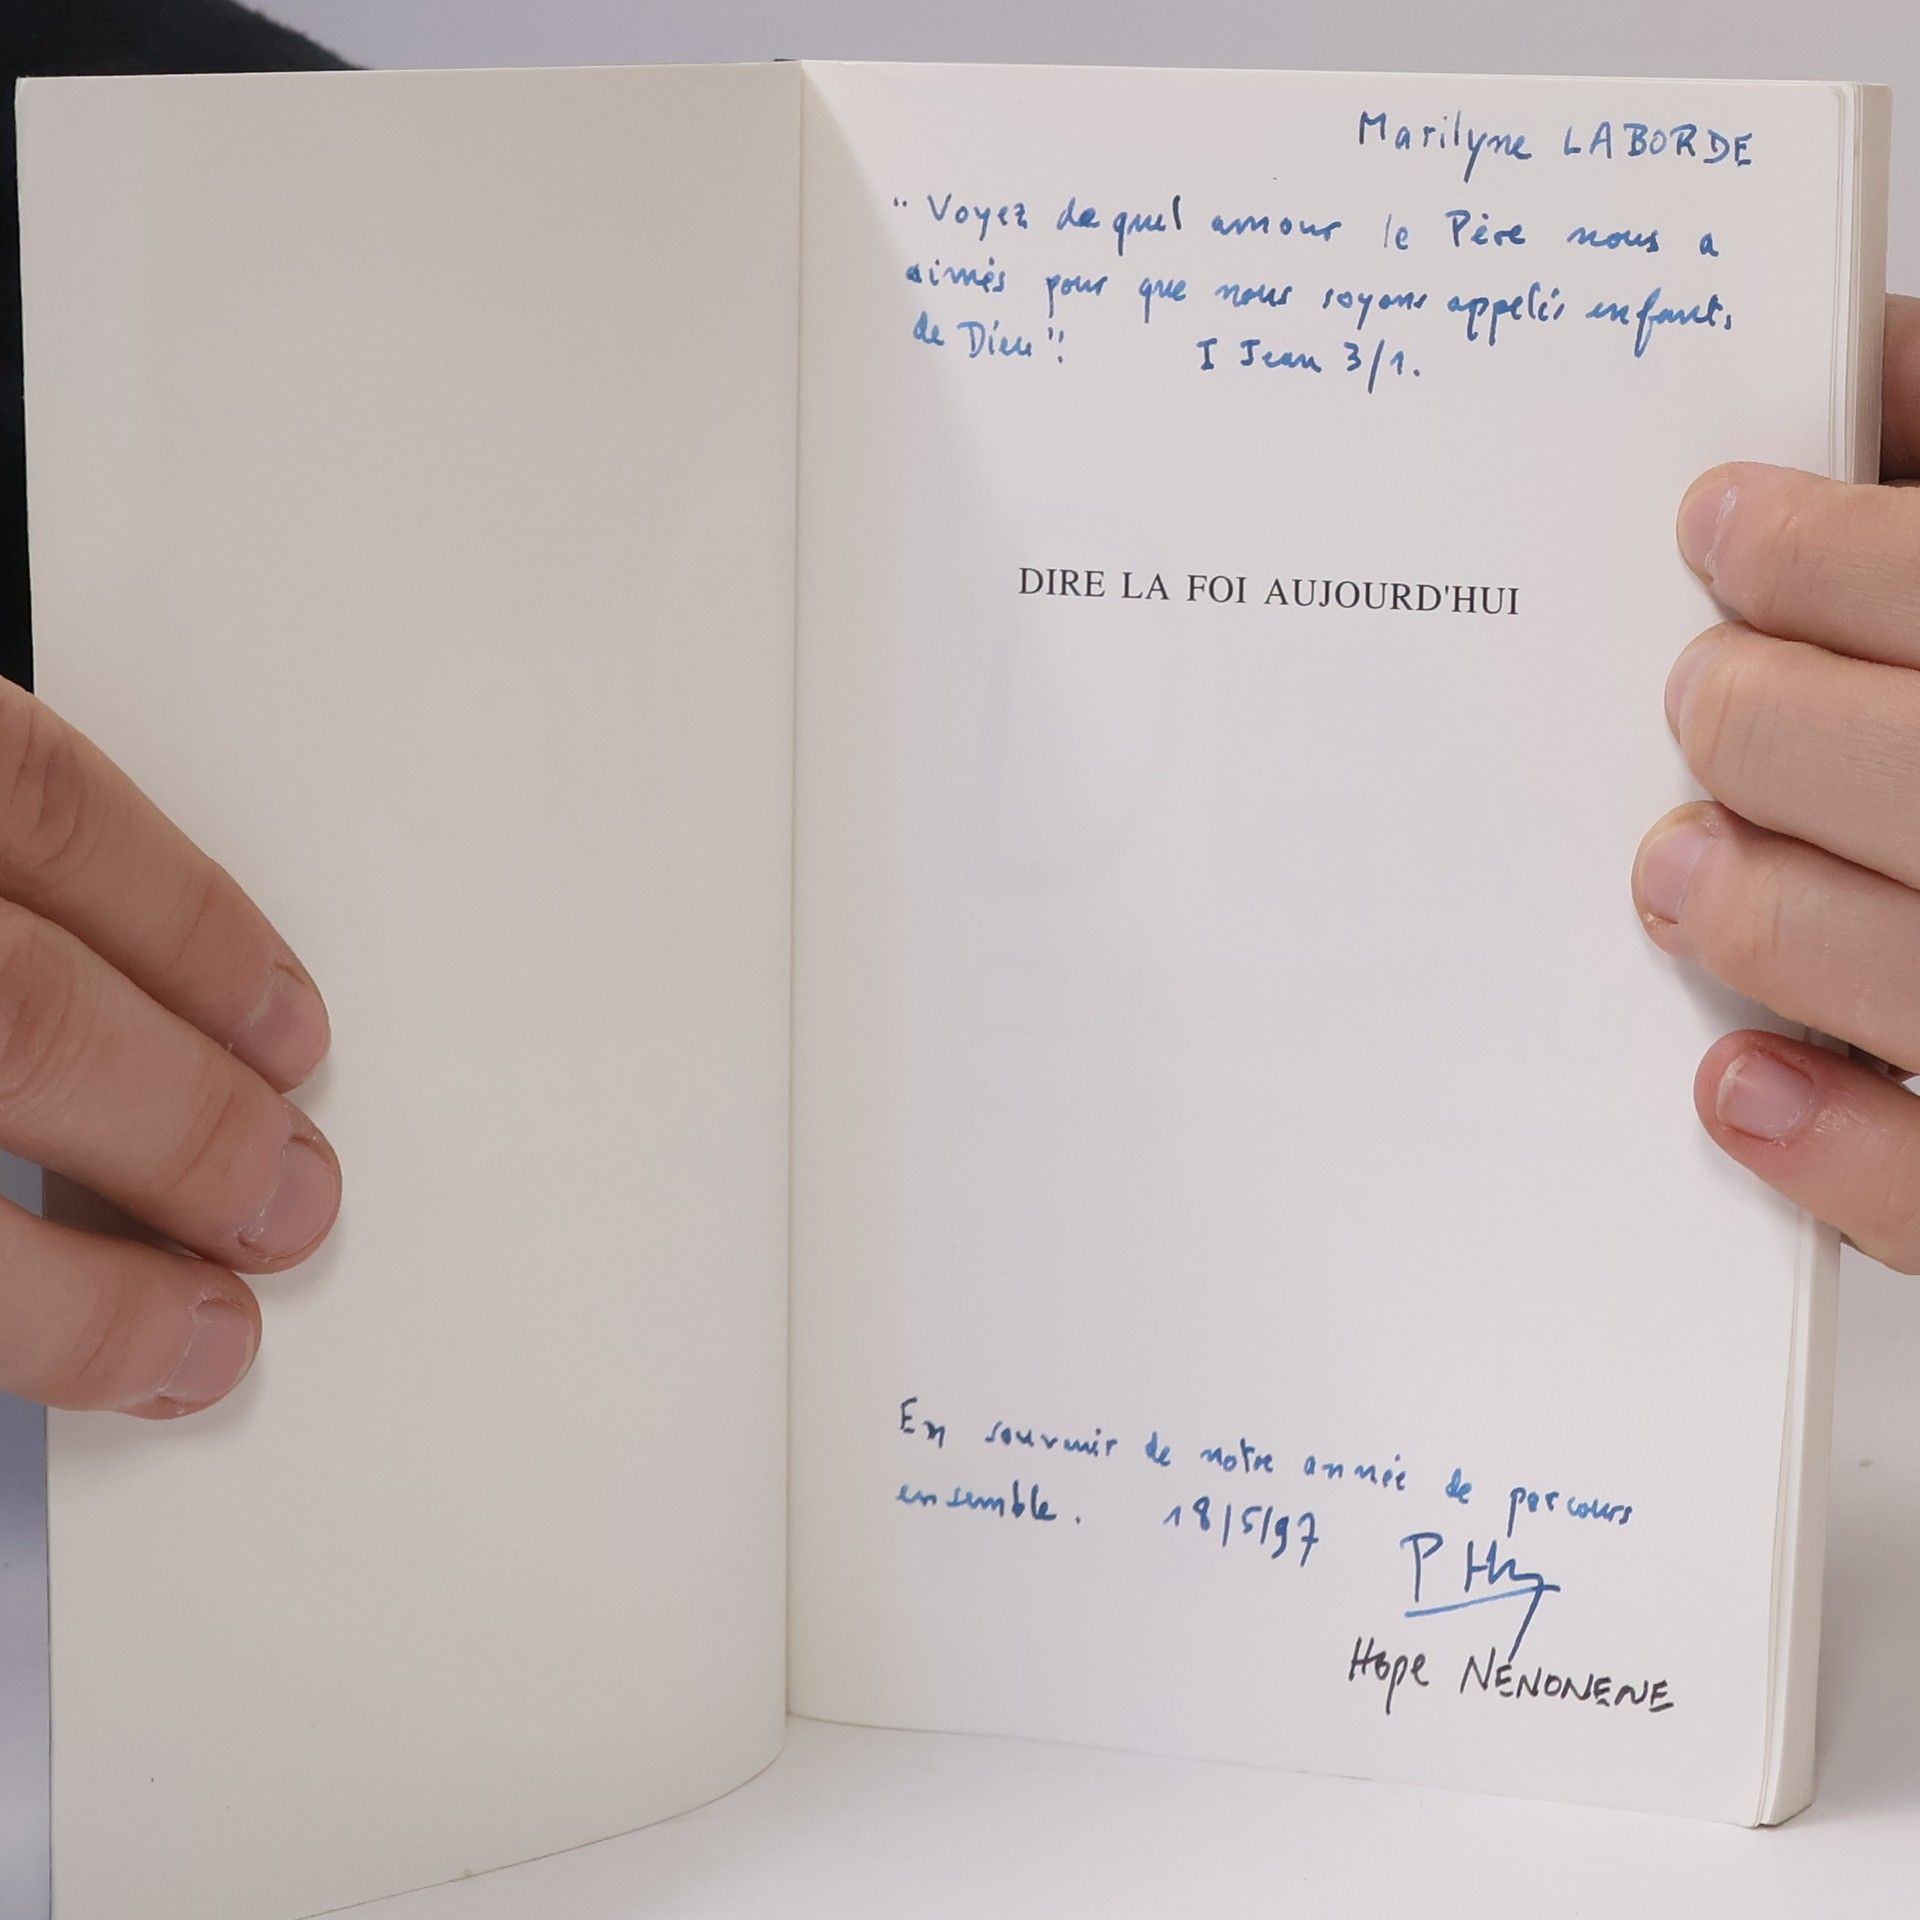 Marilyne LABORDE
"Voyez de quel amour le Père nous a
aimés pour que nous soyons appelés enfants
de Dieu".   I Jean 3/1.
DIRE LA FOI AUJOURD'HUI
En souvenir de notre année de parcours
ensemble.   18/5/97
Hope NÉNONENE